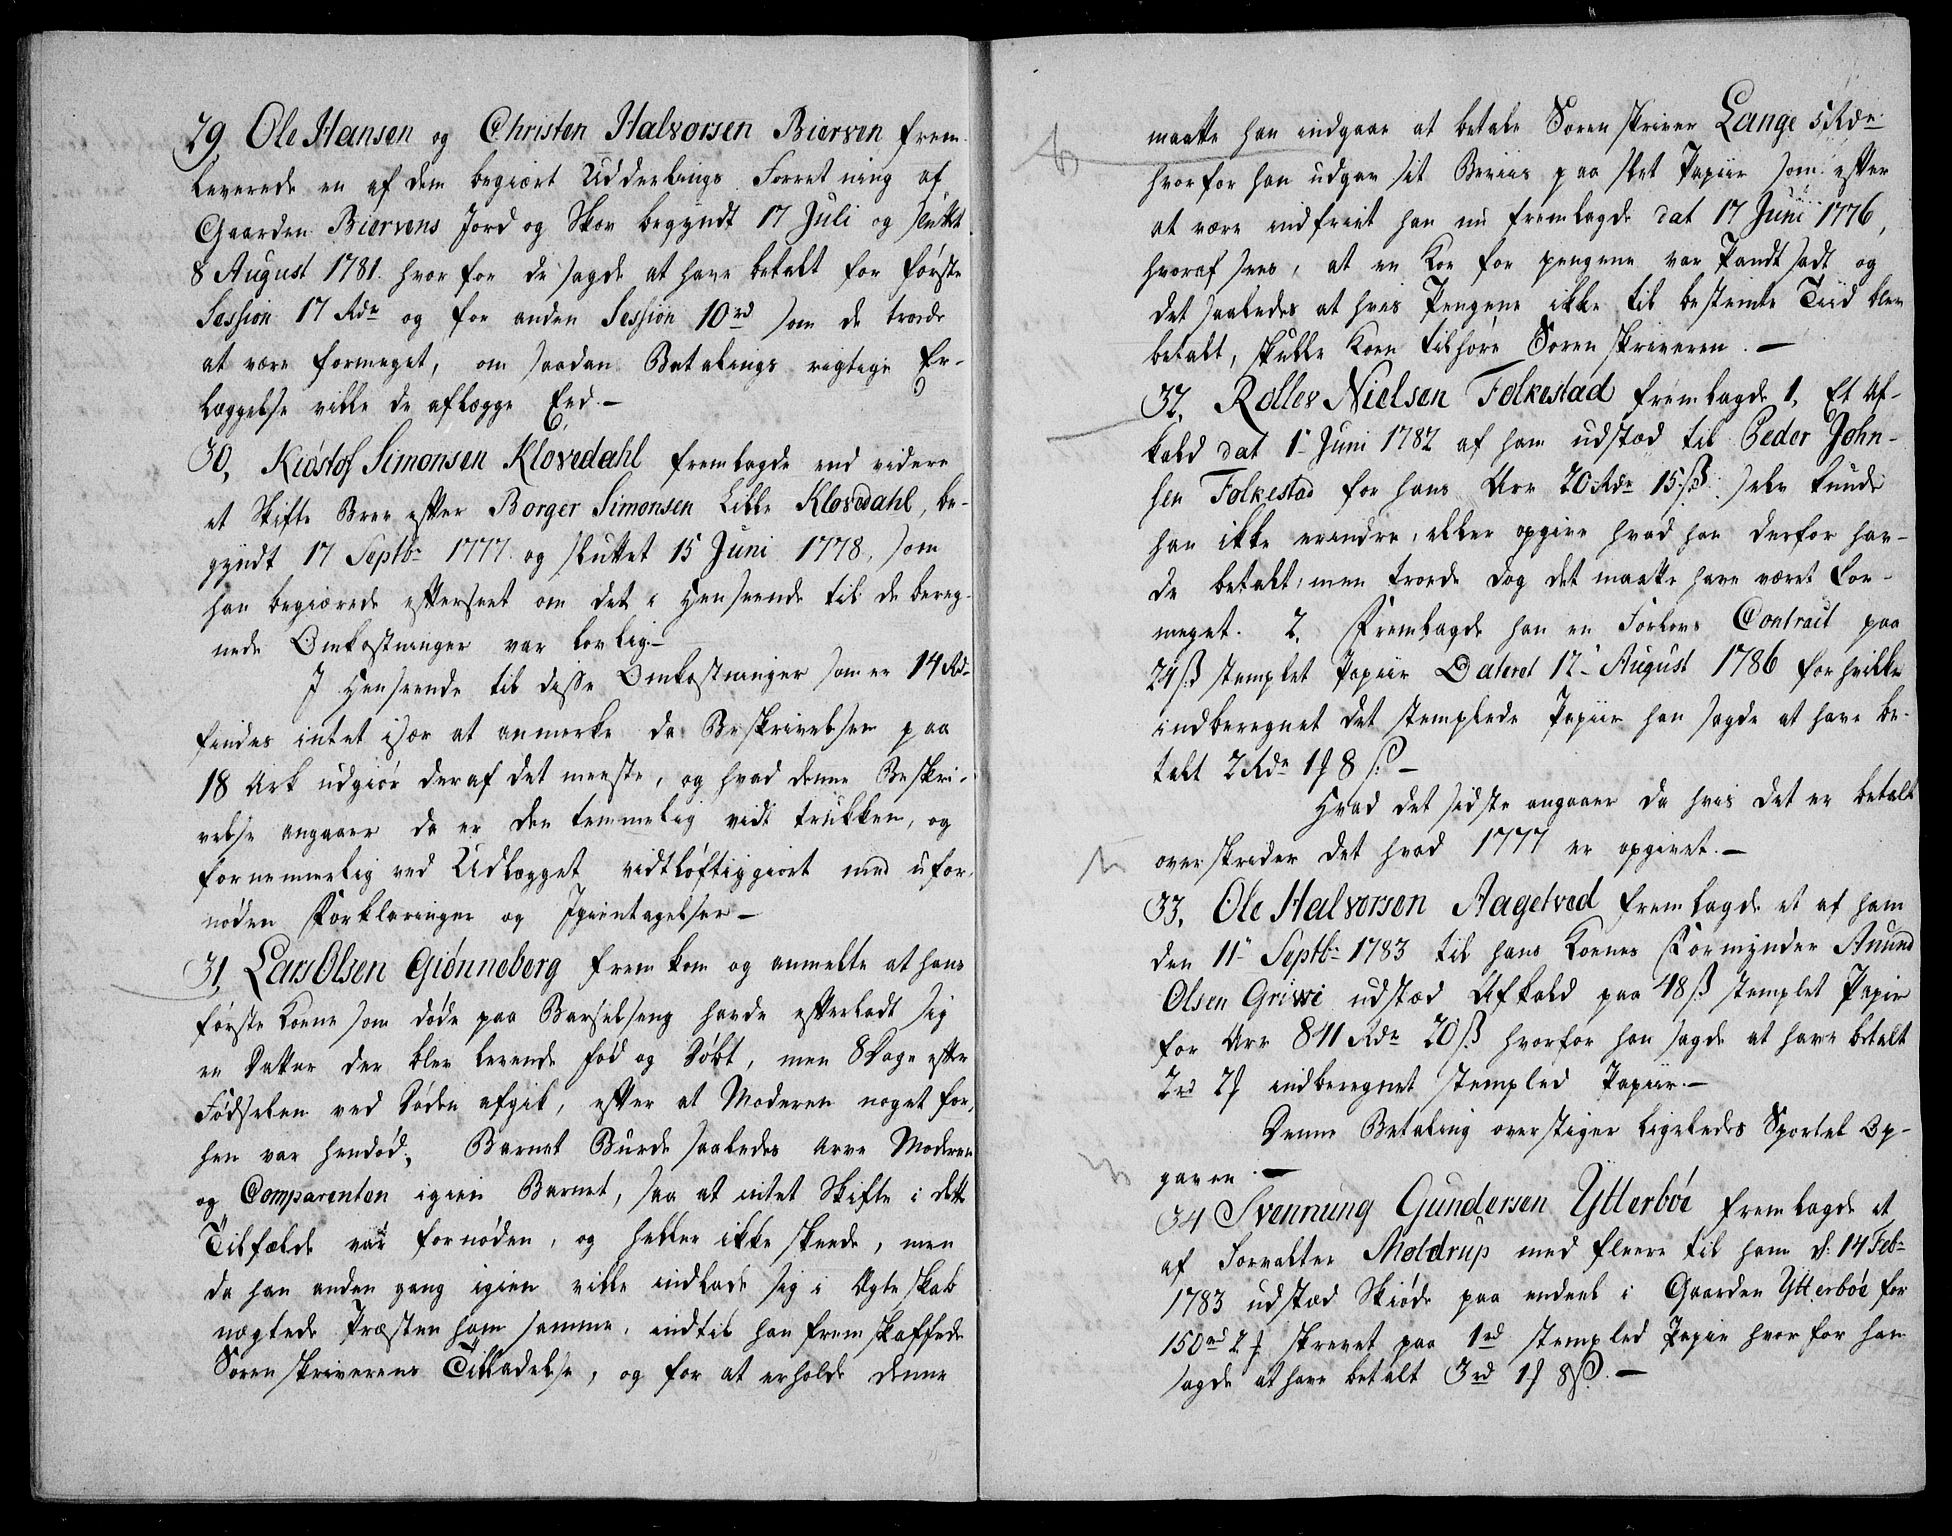 29 Ole Hansen og Christen Halvorsen Bierven frem-
leverede en af dem begiært Uddeelings Forretning af
Gaarden Biervens Jord og Skov begyndt 17 Juli og sluttet
8 August 1781. hvorfor de sagde at have betalt for første
Session 17 Rdr og for anden Session 10rd som de troede
at være formeget, om saadan Betalings rigtige Er-
læggelse ville de aflægge Eed.—
30, Kiøstof Simonsen Kløvedahl fremlagde end videre
et Skifte Brev efter Borger Simonsen Lille Kløvedahl, be-
gyndt 17 Septbr 1777. og sluttet 15 Juni 1778, som
han begiærede efterseet om det i Henseende til de bereg-
nede Omkostninger var lovlig.—
I Henseende til disse Omkostninger som er 14 Rdr
findes intet især at anmerke da Beskrivelsen paa
18 Ark udgiør deraf det meeste, og hvad denne Beskri-
velse angaaer da er den temmelig vidt trukken, og
fornemmelig ved Udlægget vidtløftiggiort med ufor-
nøden Forklaringer og Igientagelser—
31, Lars Olsen Giønneborg fremkom og anmelte at hans
første Kone som døde paa Barselseng havde efterladt sig
en Datter der blev levende fød og døbt, men 8 Dage efter
Fødselen ved Døden afgik, efter at Moderen noget for-
hen var hendød, Barnet Burde saaledes arve Moderen
og Comparenten igien Barnet, saa at intet Skifte i dette
Tilfælde var fornøden, og heller ikke skeede, men
da han anden gang igien ville indlade sig i Ægteskab
nægtede Præsten ham samme, indtil han fremskaffede
Sorenskriverens Tilladelse, og for at erholde denne
maatte han indgaae at betale Sorenskriver Lange 5 Rdr
hvorfor han udgav sit Beviis paa slet Papiir som efter
at være indfriet han nu fremlagde dat 17 Juni 1776,
hvoraf sees, at en Koe for pengene var Pandtsadt og
det saaledes at hvis Pengene ikke til bestemte Tiid blev
betalt, skulle Koen tilhøre Sorenskriveren.—
32, Rollev Nielsen Folkestad fremlagde 1, Et Af-
kald dat 1te Juni 1782 af ham udstæd til Peder John-
sen Folkestad for hans Arv 20 Rdr 15 ß. selv kunde
han ikke erindre, eller opgive hvad han derfor hav-
de betalt, men troede dog det maatte have været for-
meget. 2, Fremlagde han en Forlovs Contract paa
24 ß stemplet Papiir Dateret 12te August 1786 for hvilke
indberegnet det stemplede Papiir han sagde at have be-
talt 2 Rdr 1 f 8 ß.—
Hvad det sidste angaaer da hvis det er betalt
overskrider det hvad 1777 er opgivet.—
33, Ole Halvorsen Aagetved fremlagde et af ham
den 11te Septbr 1783 til hans Koenes Formynder Anund
Olsen Griwi udstæd Afkald paa 48 ß stemplet Papir
for Arv 841 Rdr 20 ß hvorfor han sagde at have betalt
2rd 2 f indberegnet stempled Papiir.—
Denne Betaling overstiger ligeledes Sportel Op-
gaven.—
34 Svennung Gundersen Ytterbøe fremlagde et
af Forvalter Møldrup med fleere til ham d: 14 Febr
1783 udstæd Skiøde paa endeel i Gaarden Ytterbøe for
150rd 2 f skrevet paa 1rd stempled Papir hvorfor han
sagde at have betalt 3rd 1 f 8 ß.—